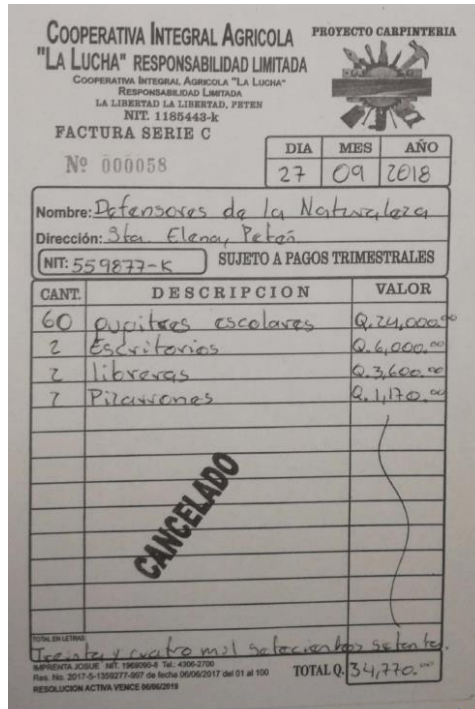 COOPERATIVA INTEGRAL AGRICOLA
"LA LUCHA" RESPONSABILIDAD LIMITADA
COOPERATIVA INTEGRAL AGRICOLA "LA LUCHA"
RESPONSABILIDAD LIMITADA
LA LIBERTAD LA LIBERTAD, PETEN
NIT. 1185443-k
FACTURA SERIE C
Nº 000058
PROYECTO CARPINTERIA
DIA MES AÑO
27 09 2018
Nombre: Defensores de la Naturaleza
Dirección: Sta. Elena, Petén
NIT: 559877-K SUJETO A PAGOS TRIMESTRALES
CANT. DESCRIPCION VALOR
60 pupitres escolares Q.24,000.00
2 Escritorios Q.6,000.00
2 libreras Q.3,600.00
2 Pizarrones Q.1,170.00
CANCELADO
TOTAL EN LETRAS:
Treinta y cuatro mil setecientos setenta.
IMPRENTA JOSUE NIT. 1969090-8 Tel.: 4306-2700
Res. No. 2017-5-1359277-997 de fecha 06/06/2017 del 01 al 100
RESOLUCION ACTIVA VENCE 06/06/2019
TOTAL Q. 34,770.00